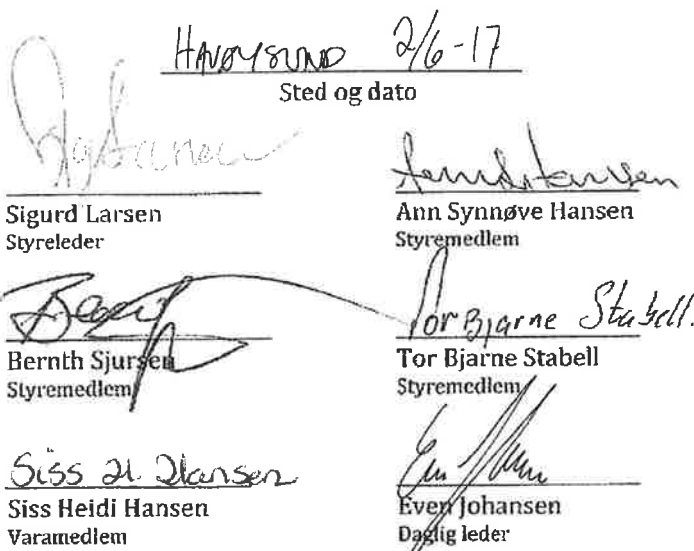 HAVØYSUND 2/6-17
Sted og dato
Sigurd Larsen
Styreleder
Ann Synnøve Hansen
Styremedlem
Bernth Sjursen
Styremedlem
Tor Bjarne Stabell.
Tor Bjarne Stabell
Styremedlem
Siss H. Hansen
Siss Heidi Hansen
Varamedlem
Even Johansen
Daglig leder